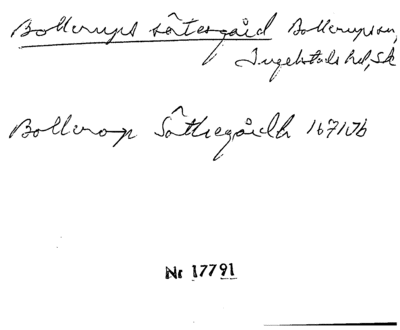 Bollerups sätesgård Bollerups sn,
Ingelstads hd, Sk
Bollerop Säthegårdh 1671 Jb
Nr 17791